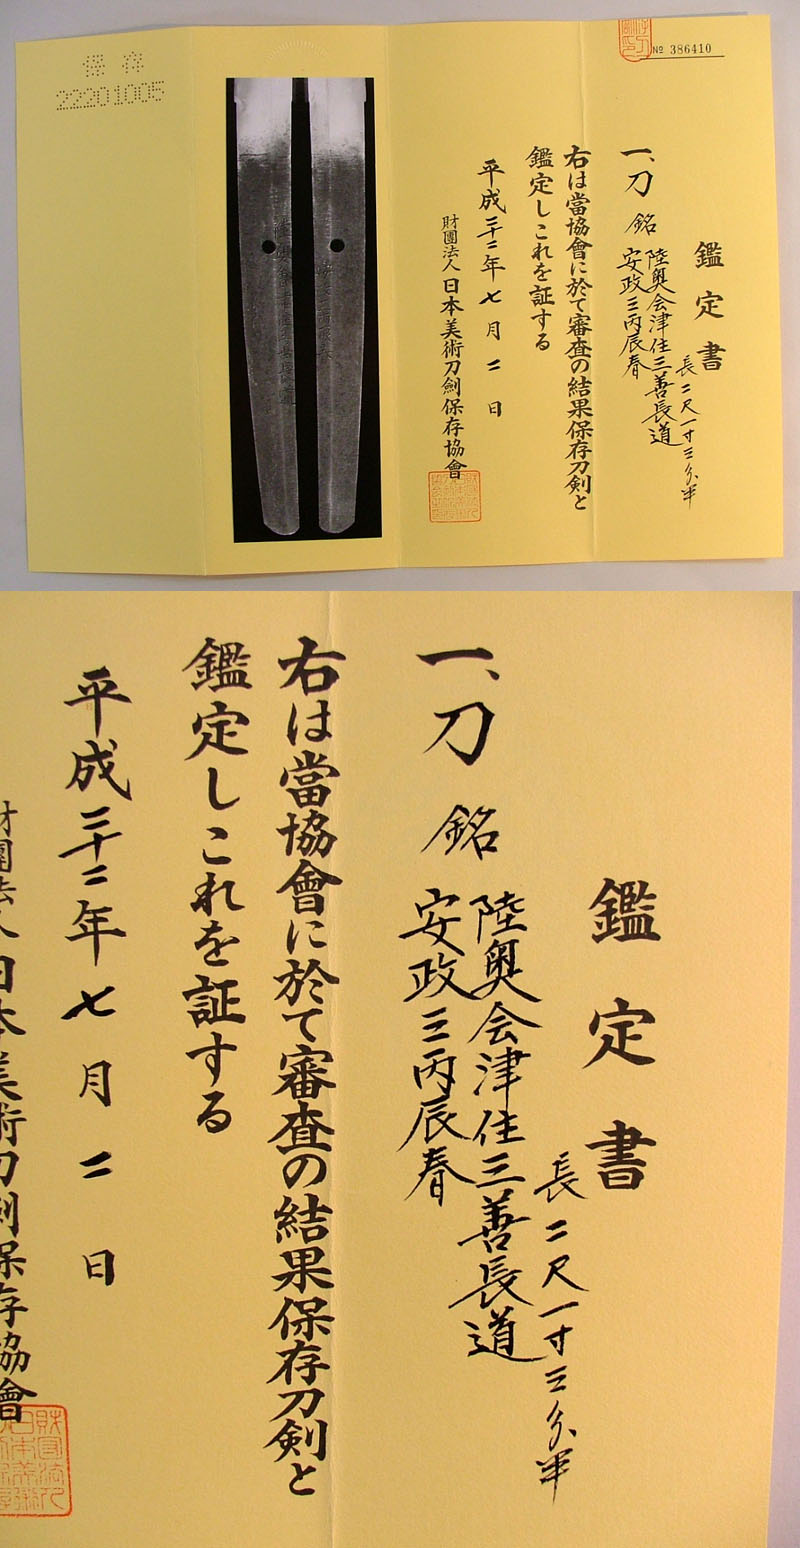 保存
22201005
№ 386410
鑑定書
一、刀 銘 陸奥会津住三善長道
安政三丙辰春
長二尺一寸三分半
右は當協會に於て審査の結果保存刀剣と
鑑定しこれを証する
平成二十二年七月二日
財團法人日本美術刀劍保存協會
鑑定書
長二尺一寸三分半
一、刀 銘 陸奥会津住三善長道
安政三丙辰春
右は當協會に於て審査の結果保存刀剣と
鑑定しこれを証する
平成二十二年七月二日
財團法人日本美術刀劍保存協會